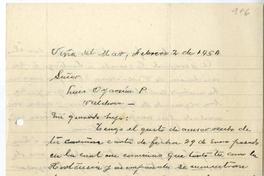 Viña del Mar, Febrero 2 de 1950.
Señor
Luis Oyarzún P.
Valdivia.-
Mi querido hijo:
Tengo el gusto de avisar recibo de
tu cariñosa carta de fecha 29 de Enero pasado
en la cual me comunicas que tanto tú como la
se encuentran